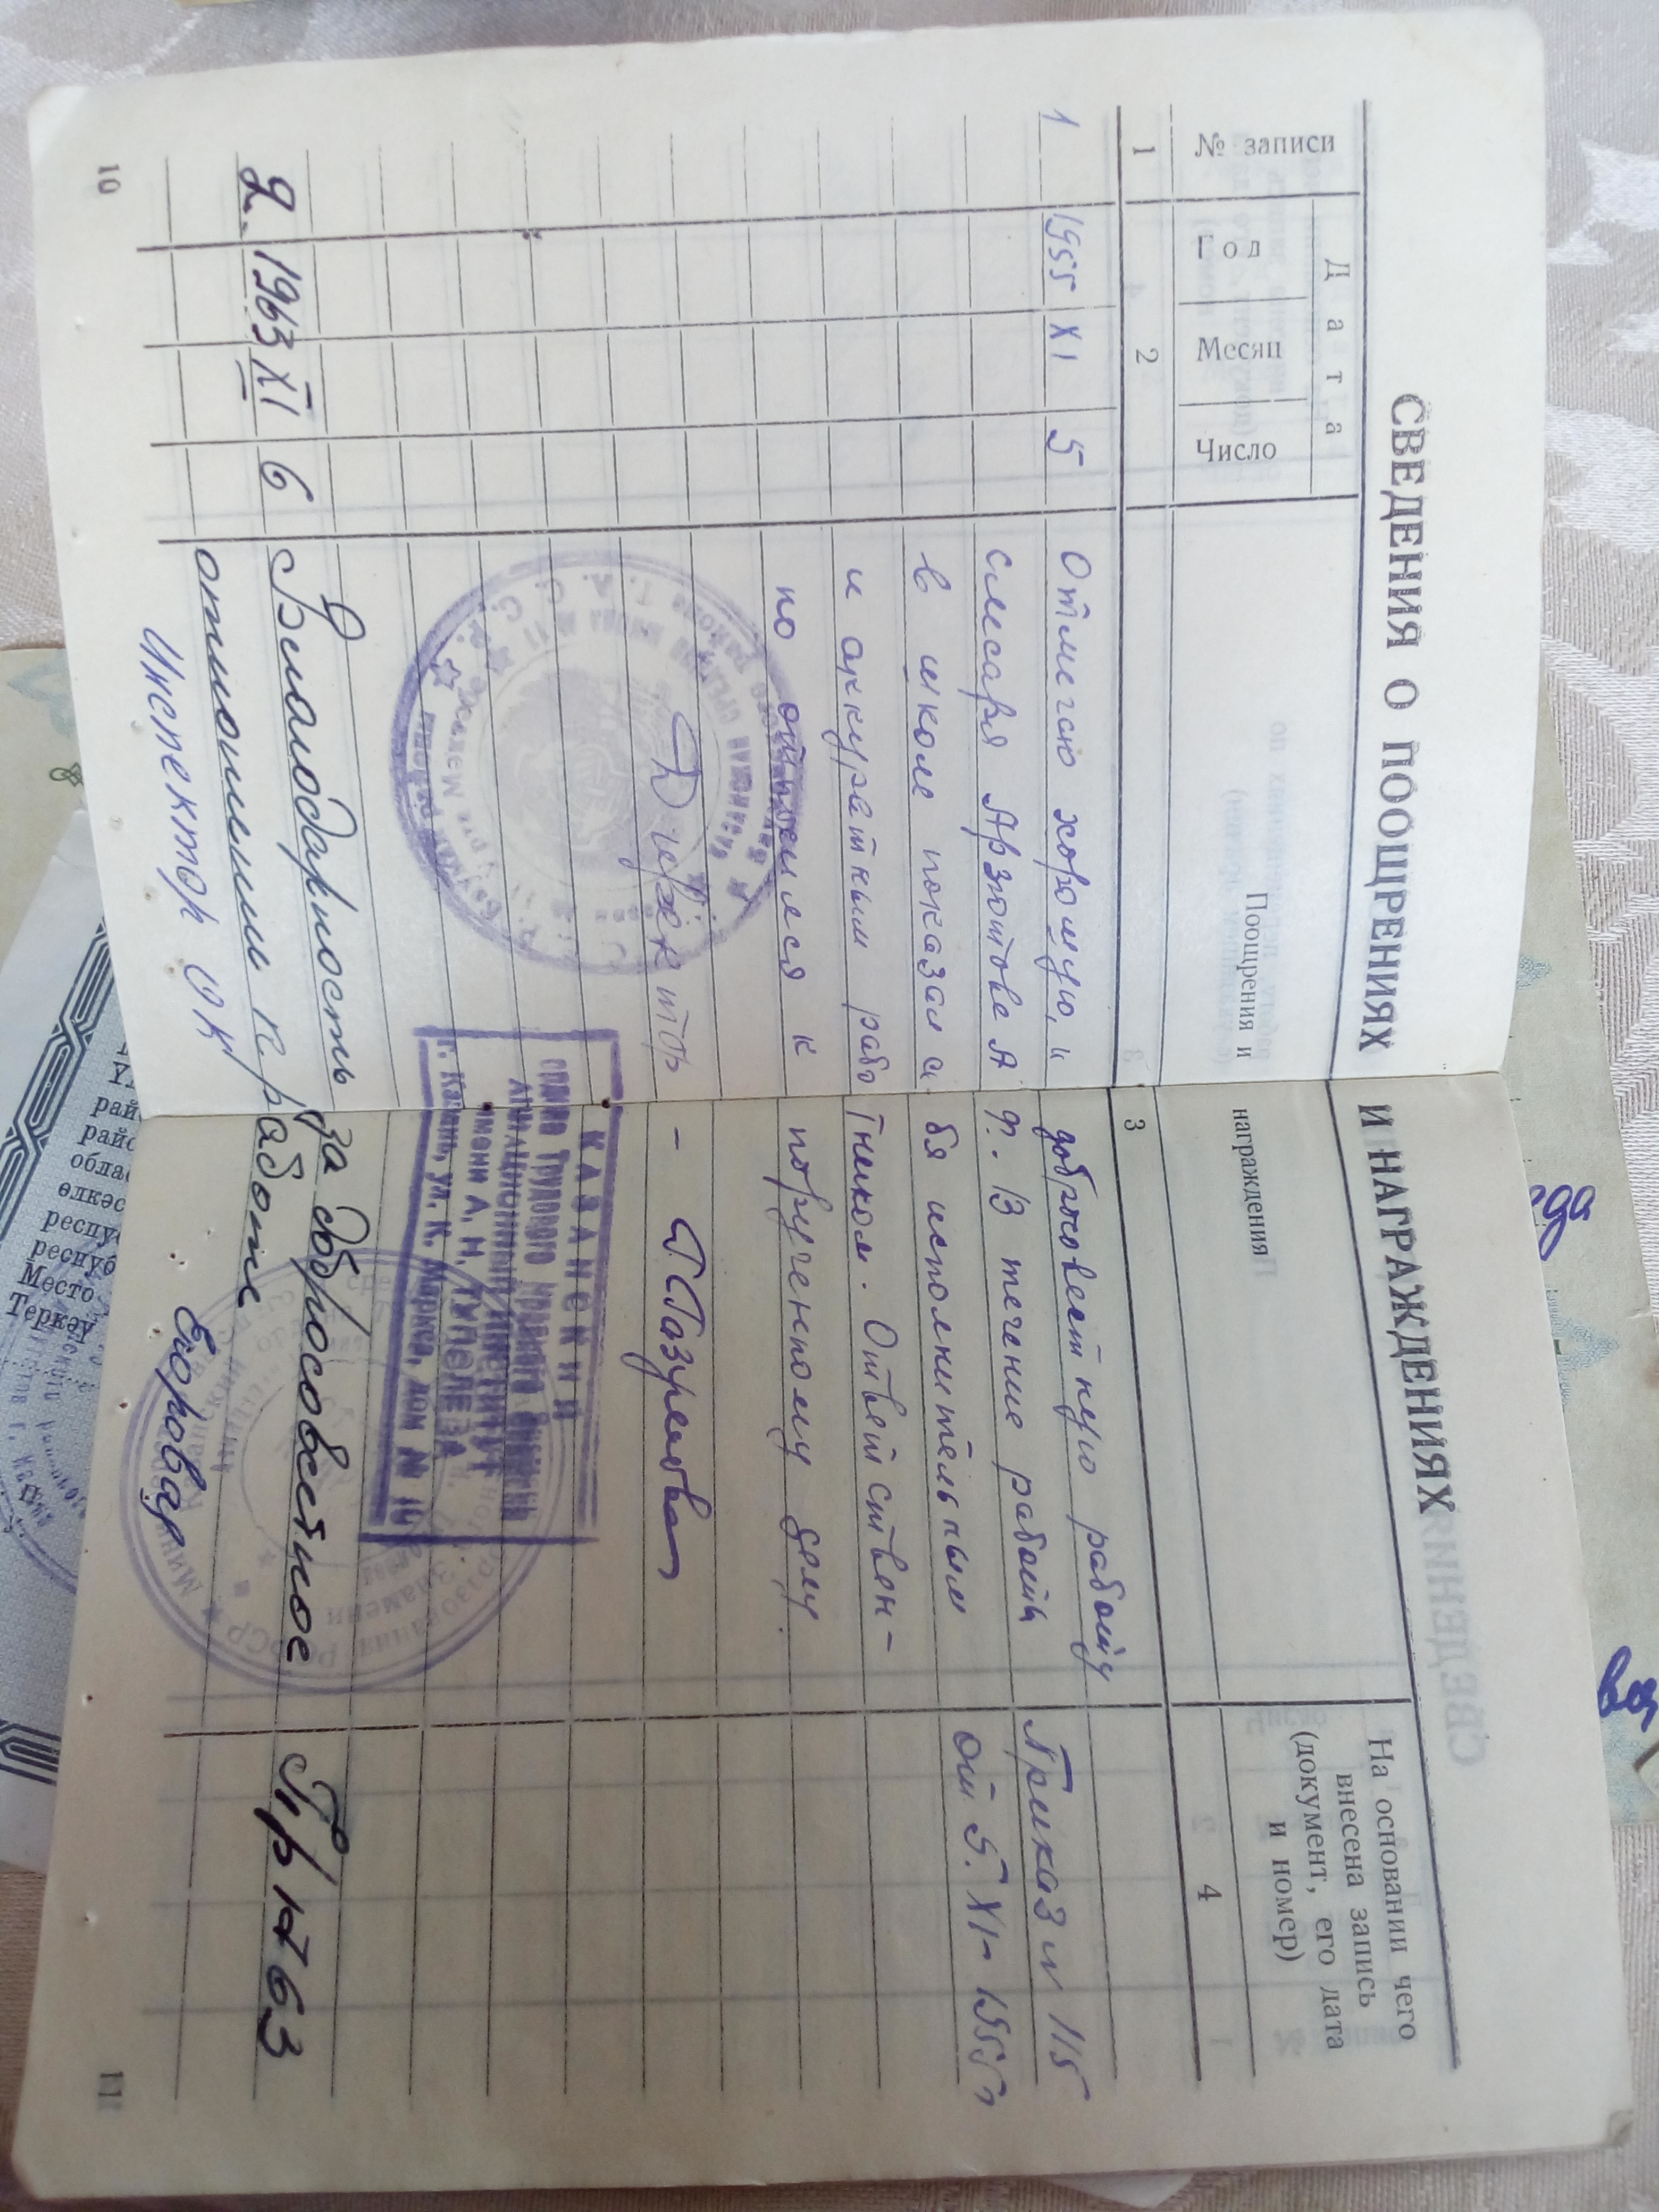 СВЕДЕНИЯ О ПООЩРЕНИЯХ И НАГРАЖДЕНИЯХ
№ записи
Дата
Год
Месяц
Число
Поощрения и награждения
На основании чего
внесена запись
(документ, его дата
и номер)
1 2 3 4
1 1955 XI 5 Отмечаю хорошую, и добросовестную работу
слесаря А Ф. В течение работы Приказ N 115
в школе показал себя исполнительным от 5.XI-1955г
и аккуратным работником. Ответствен-
но относился к порученному делу.
Директор -
КАЗАНСКИЙ
ОРДЕНА ТРУДОВОГО КРАСНОГО ЗНАМЕНИ
АВИАЦИОННЫЙ ИНСТИТУТ
ИМЕНИ А. Н. ТУПОЛЕВА
г. Казань, ул. К. Маркса, дом № 10
2. 1963 XI 6 Благодарность за добросовестное Пр 1763
отношение к работе
Инспектор ОК Егорова
10
11
рай
райо
облас
өлкәс
респу
респуб
Место
Теркәү